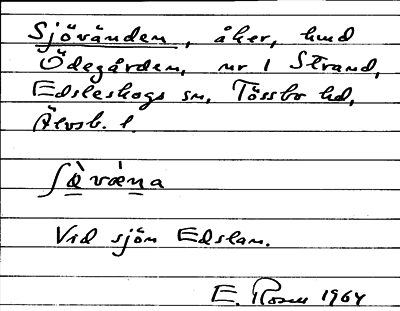 Sjövänden, åker, hmd
Ödegården, nr 1 Strand,
Edsleskogs sn, Tössbo hd,
Älvsb. l.
ʃø̀væ̀na
Vid sjön Edslan.
E. Rosen 1964